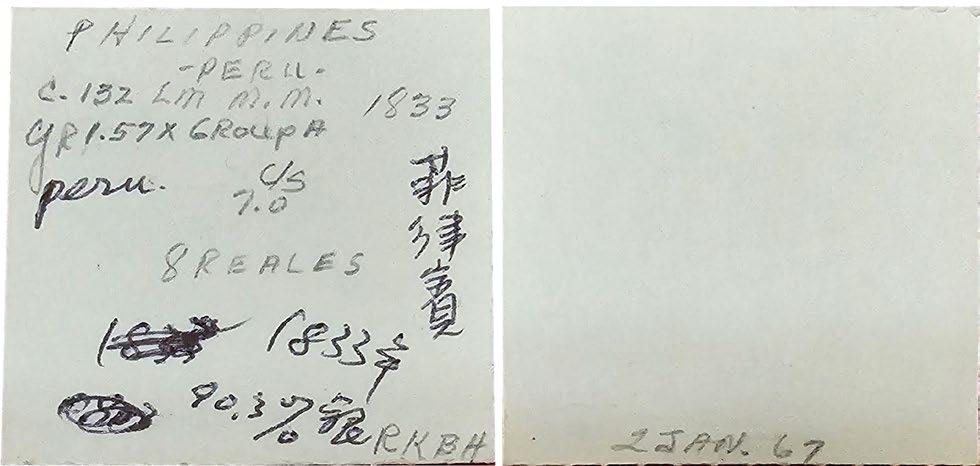 PHILIPPINES
-PERU-
C.132 LM M.M. 1833
GR1.57X GROUP A
peru. C/S
7.0
菲律賓
8 REALES
1833年
90.3% 銀
RKBH
2 JAN. 67